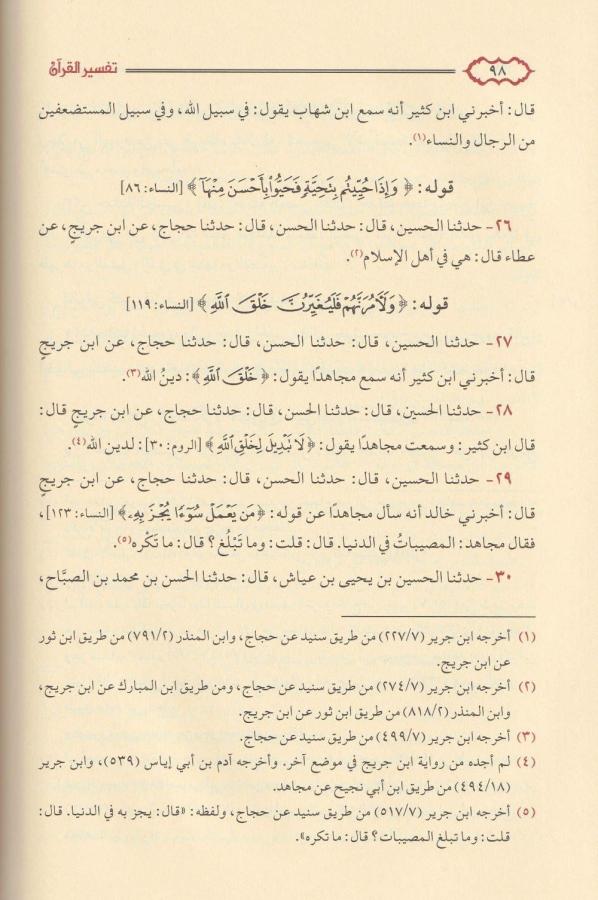 ٩٨ تفسير القرآن
قال: أخبرني ابن كثير أنه سمع ابن شهاب يقول: في سبيل الله، وفي سبيل المستضعفين
من الرجال والنساء(١).
قوله: ﴿ وَإِذَا حُيِّيتُم بِتَحِيَّةٍ فَحَيُّوا بِأَحْسَنَ مِنْهَآ ﴾ [النساء: ٨٦]
٢٦- حدثنا الحسين، قال: حدثنا الحسن، قال: حدثنا حجاج، عن ابن جريجٍ، عن
عطاء قال: هي في أهل الإسلام(٢).
قوله: ﴿ وَلَآمُرَنَّهُمْ فَلَيُغَيِّرُنَّ خَلْقَ ٱللَّهِ ﴾ [النساء: ١١٩]
٢٧- حدثنا الحسين، قال: حدثنا الحسن، قال: حدثنا حجاج، عن ابن جريجٍ
قال: أخبرني ابن كثير أنه سمع مجاهدًا يقول: ﴿ خَلْقَ ٱللَّهِ ﴾: دينُ الله(٣).
٢٨- حدثنا الحسين، قال: حدثنا الحسن، قال: حدثنا حجاج، عن ابن جريج قال:
قال ابن كثير: وسمعت مجاهدًا يقول: ﴿لَا نَبْدِيلَ لِخَلْقِ ٱللَّهِ ﴾ [الروم: ٣٠]: لدين الله(٤).
٢٩- حدثنا الحسين، قال: حدثنا الحسن، قال: حدثنا حجاج، عن ابن جريجٍ
قال: أخبرني خالد أنه سأل مجاهدًا عن قوله: ﴿مَن يَعْمَلْ سُوٓءًا يُجْزَ بِهِۦ﴾ [النساء: ١٢٣]،
فقال مجاهد: المصيباتُ في الدنيا. قال: قلت: وما تَبْلُغ؟ قال: ما تَكْره(٥).
٣٠- حدثنا الحسين بن يحيى بن عياش، قال: حدثنا الحسن بن محمد بن الصبَّاح،
(١) أخرجه ابن جرير (٧/ ٢٢٧) من طريق سنيد عن حجاج، وابن المنذر (٢/ ٧٩١) من طريق ابن ثور
عن ابن جريج.
(٢) أخرجه ابن جرير (٧/ ٢٧٤) من طريق سنيد عن حجاج، ومن طريق ابن المبارك عن ابن جريج،
وابن المنذر (٢/ ٨١٨) من طريق ابن ثور عن ابن جريج.
(٣) أخرجه ابن جرير (٧/ ٤٩٩) من طريق سنيد عن حجاج.
(٤) لم أجده من رواية ابن جريج في موضع آخر. وأخرجه آدم بن أبي إياس (٥٣٩)، وابن جرير
(١٨/ ٤٩٤) من طريق ابن أبي نجيح عن مجاهد.
(٥) أخرجه ابن جرير (٧/ ٥١٧) من طريق سنيد عن حجاج، ولفظه: «قال: يجز به في الدنيا. قال:
قلت: وما تبلغ المصيبات؟ قال: ما تكره».